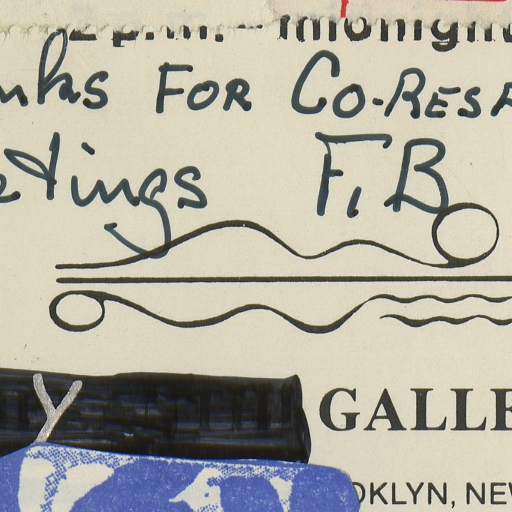 2 p.m. - midnight
nks FOR CO-RESP
etings F. B
Y GALLE
OKLYN, NEW